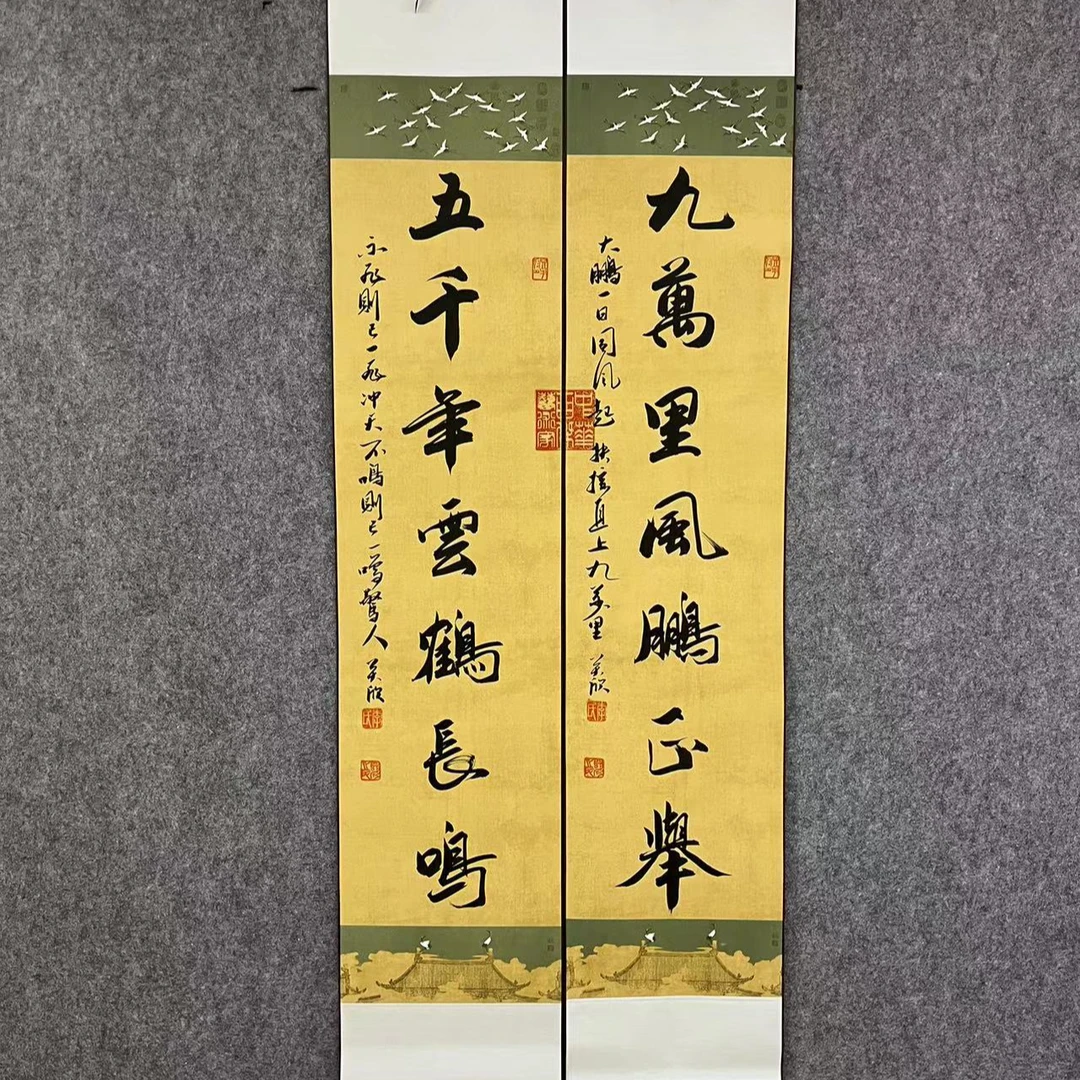 九萬里風鵬正舉
大鵬一日同風起 扶搖直上九萬里
五千年雲鶴長鳴
不飛則已一飛冲天不鳴則已一鳴驚人